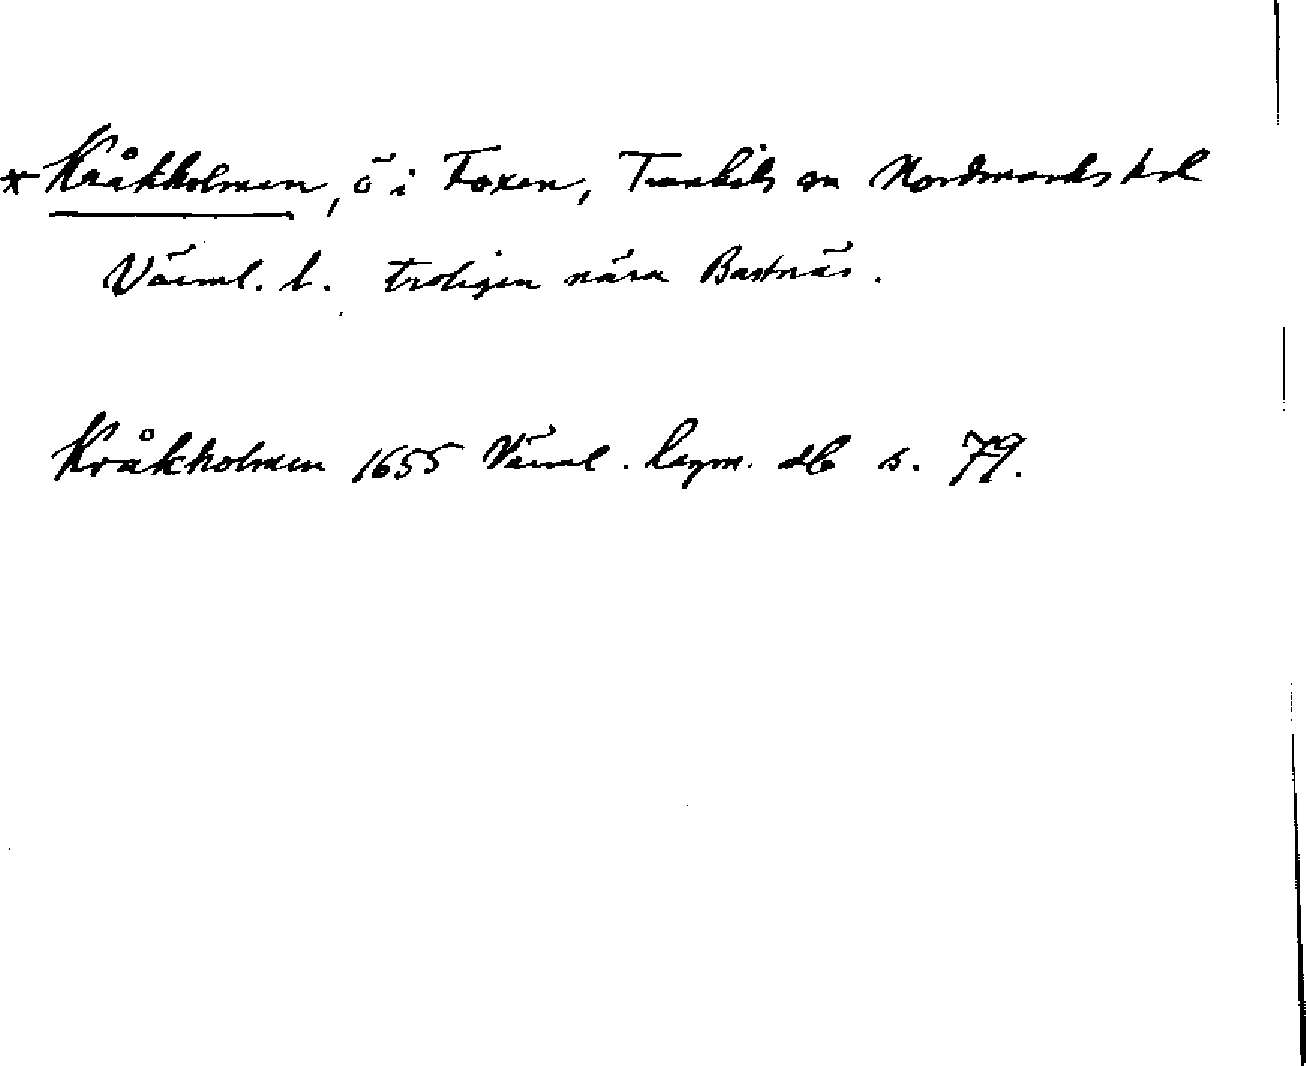 *Kråkholmen, ö i Foxen, Trankils sn Nordmarks hd
Värml. l. troligen nära Bastnäs.
Kråkholmen 1655 Värml. Regem. db s. 79.